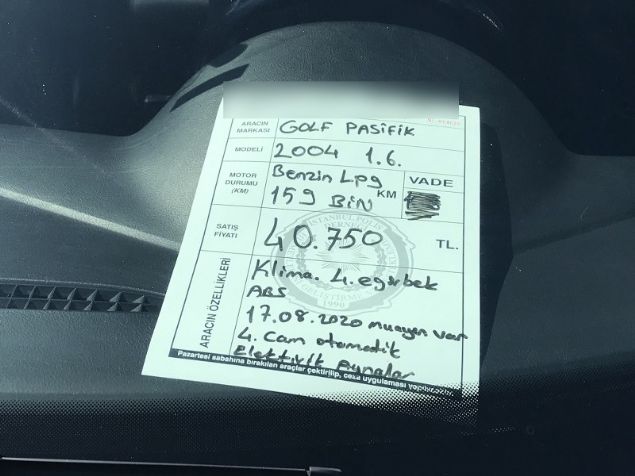 ARACIN MARKASI GOLF PASİFİK
MODELİ 2004 1.6.
MOTOR DURUMU (KM) Benzin Lpg 159 BİN KM VADE
SATIŞ FİYATI 40.750 TL.
ARACIN ÖZELLİKLERİ
Klima. 4. egırbek
ABS
17.08.2020 muayen var
4. Cam otomatik
Elektirik Aynalar
Pazartesi sabahına bırakılan araçlar çektirilip, ceza uygulaması yapılacaktır.
İSTANBUL POLİS
1990